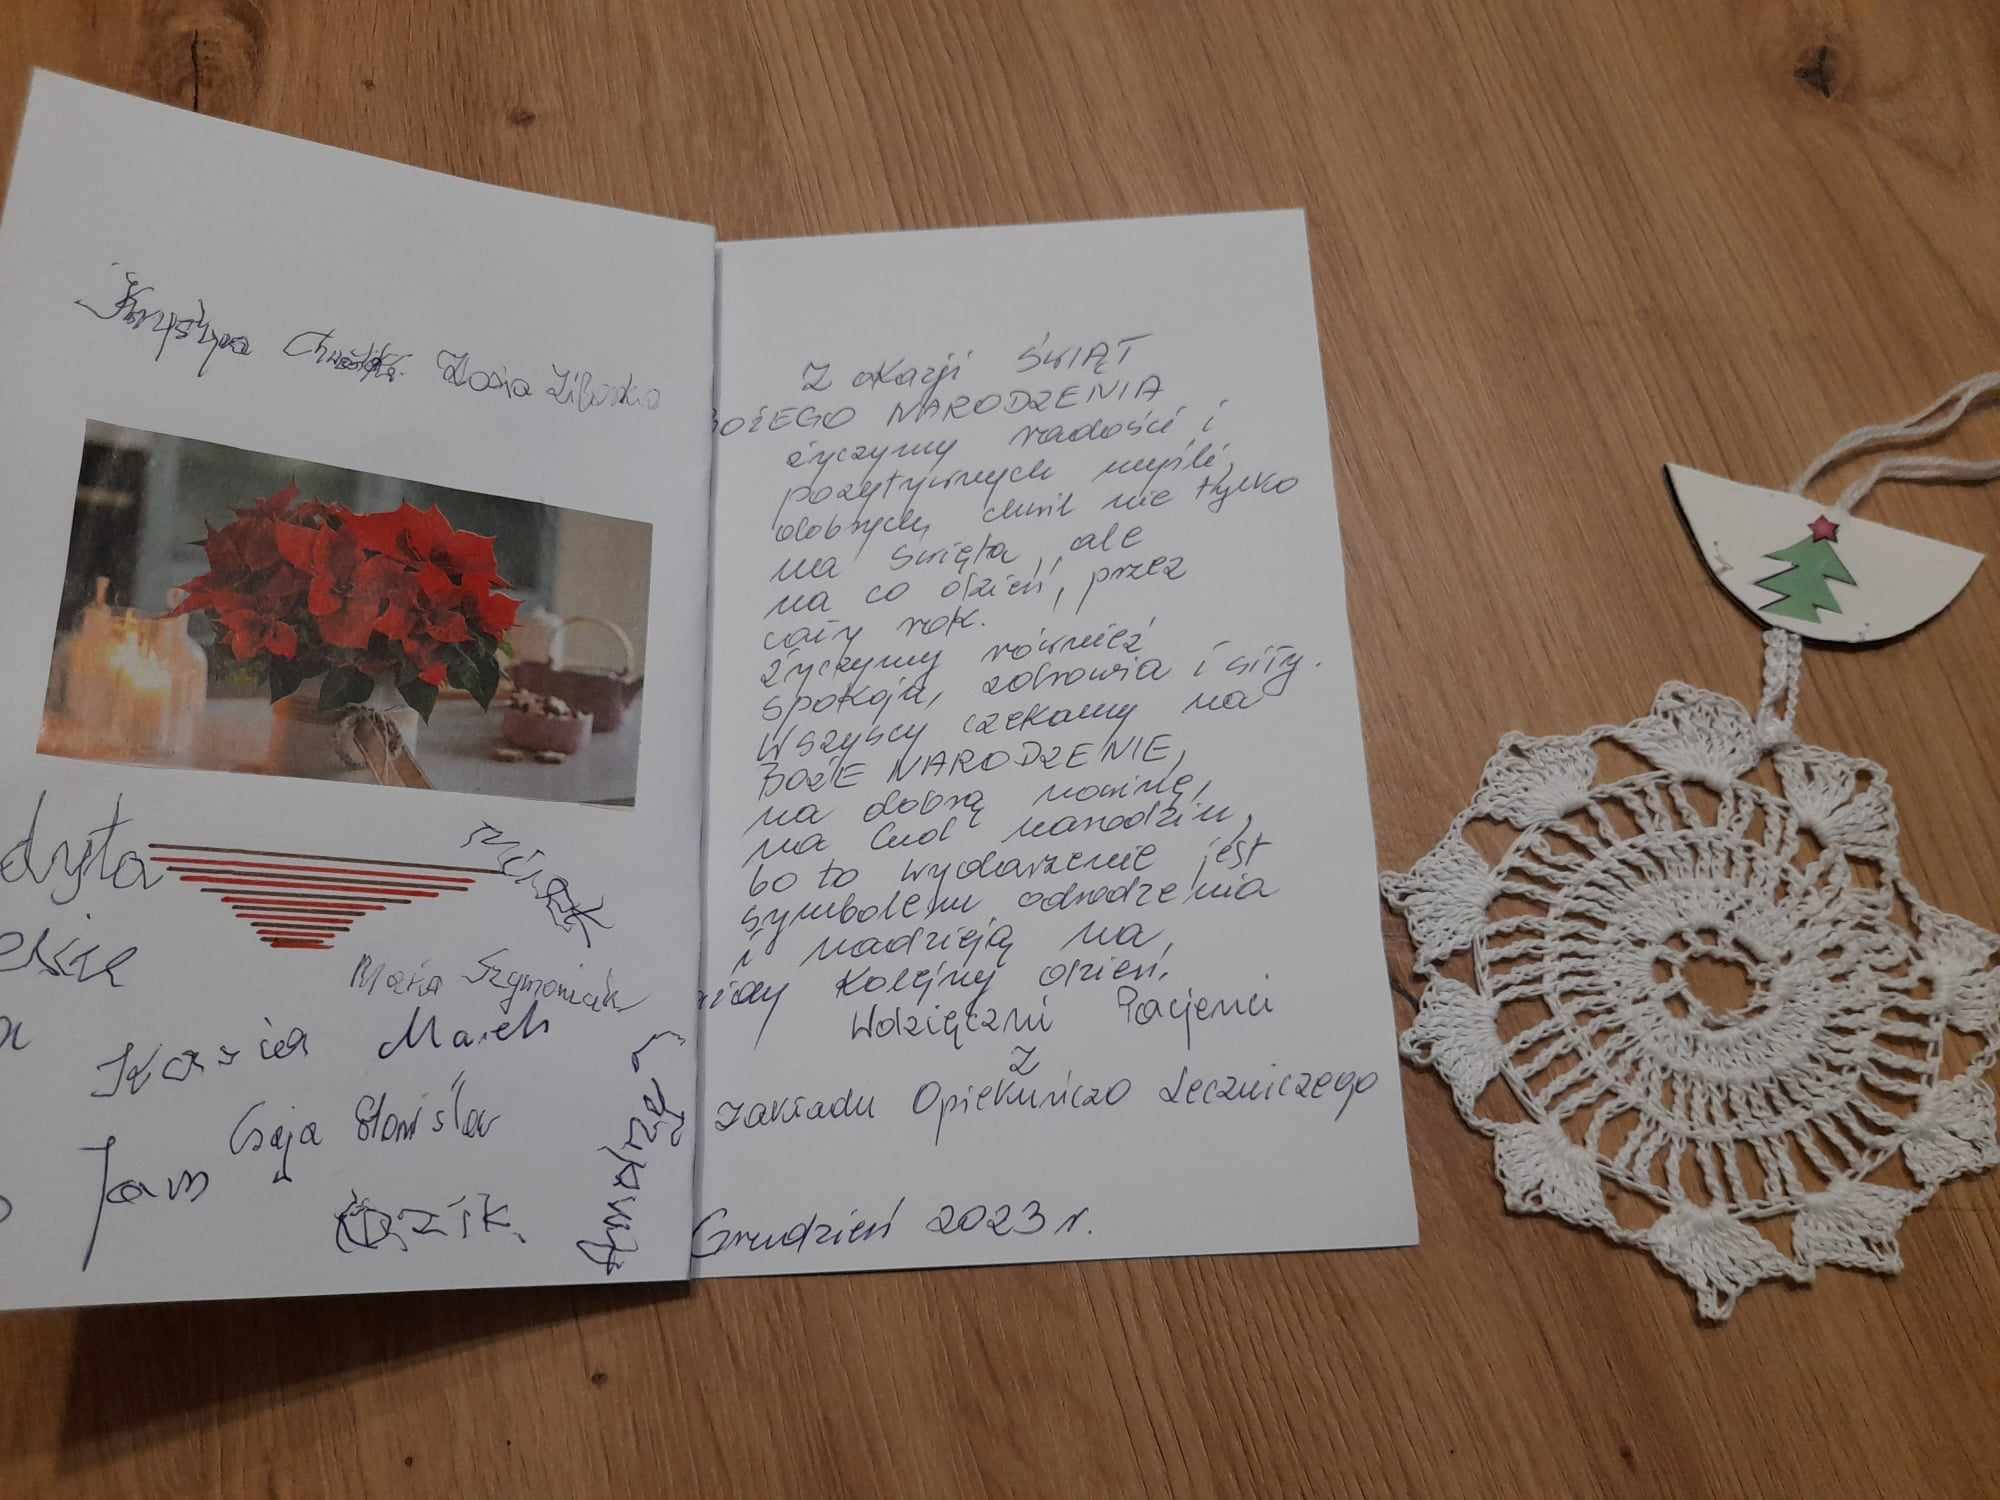 Krystyna Zosia
dyta
Maria Szymoniak
Kasia Marek
Czaja Stanisław
Jan
Z okazji ŚWIĄT
BOŻEGO NARODZENIA
życzymy radości i
pozytywnych myśli,
dobrych chwil nie tylko
na święta, ale
na co dzień, przez
cały rok.
Życzymy również
spokoju, zdrowia i siły.
Wszyscy czekamy na
BOŻE NARODZENIE,
na dobrą nowinę,
na cud narodzin,
bo to wydarzenie jest
symbolem odrodzenia
i nadzieją na
każdy kolejny dzień.
Wdzięczni Pacjenci
z
Zakładu Opiekuńczo Leczniczego
Grudzień 2023 r.